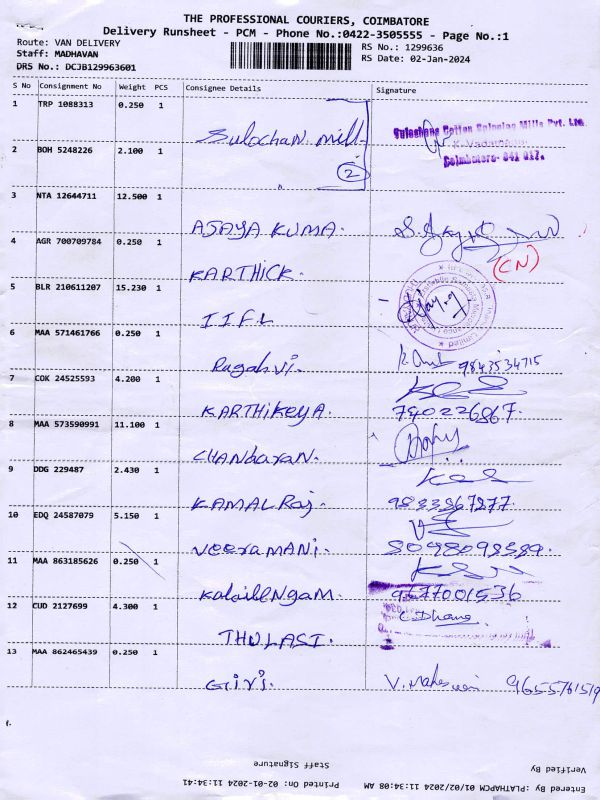 THE PROFESSIONAL COURIERS, COIMBATORE
Delivery Runsheet - PCM - Phone No.:0422-3505555 - Page No.:1
Route: VAN DELIVERY
RS No.: 1299636
Staff: MADHAVAN
RS Date: 02-Jan-2024
DRS No.: DCJB129963601
S No Consignment No Weight PCS Consignee Details Signature
1 TRP 1088313 0.250 1
Sulochan mill
Coimbatore- 641 017.
2 BOH 5248226 2.100 1
2
3 NTA 12644711 12.500 1
ASAYA KUMA.
4 AGR 700709784 0.250 1
KARTHICK. (CN)
5 BLR 210611207 15.230 1
IIFL
6 MAA 571461766 0.250 1
Ragahvi. 9843534715
7 COK 24525593 4.200 1
KARTHIKEYA. 790226867.
8 MAA 573590991 11.100 1
CHANdaran.
9 DDG 229487 2.430 1
KAMALRaj. 9833867877.
10 EDQ 24587079 5.150 1
VEERAMANi. 8098098389.
11 MAA 863185626 0.250 1
KalailENgam. 9677001536
12 CUD 2127699 4.300 1
THULASI. C. Dhana
13 MAA 862465439 0.250 1
Giri. V. Maheswari 9655761519
Staff Signature
Verified By
Printed On: 02-01-2024 11:34:41
Entered By :PLATHAPCM 01/02/2024 11:34:08 AM